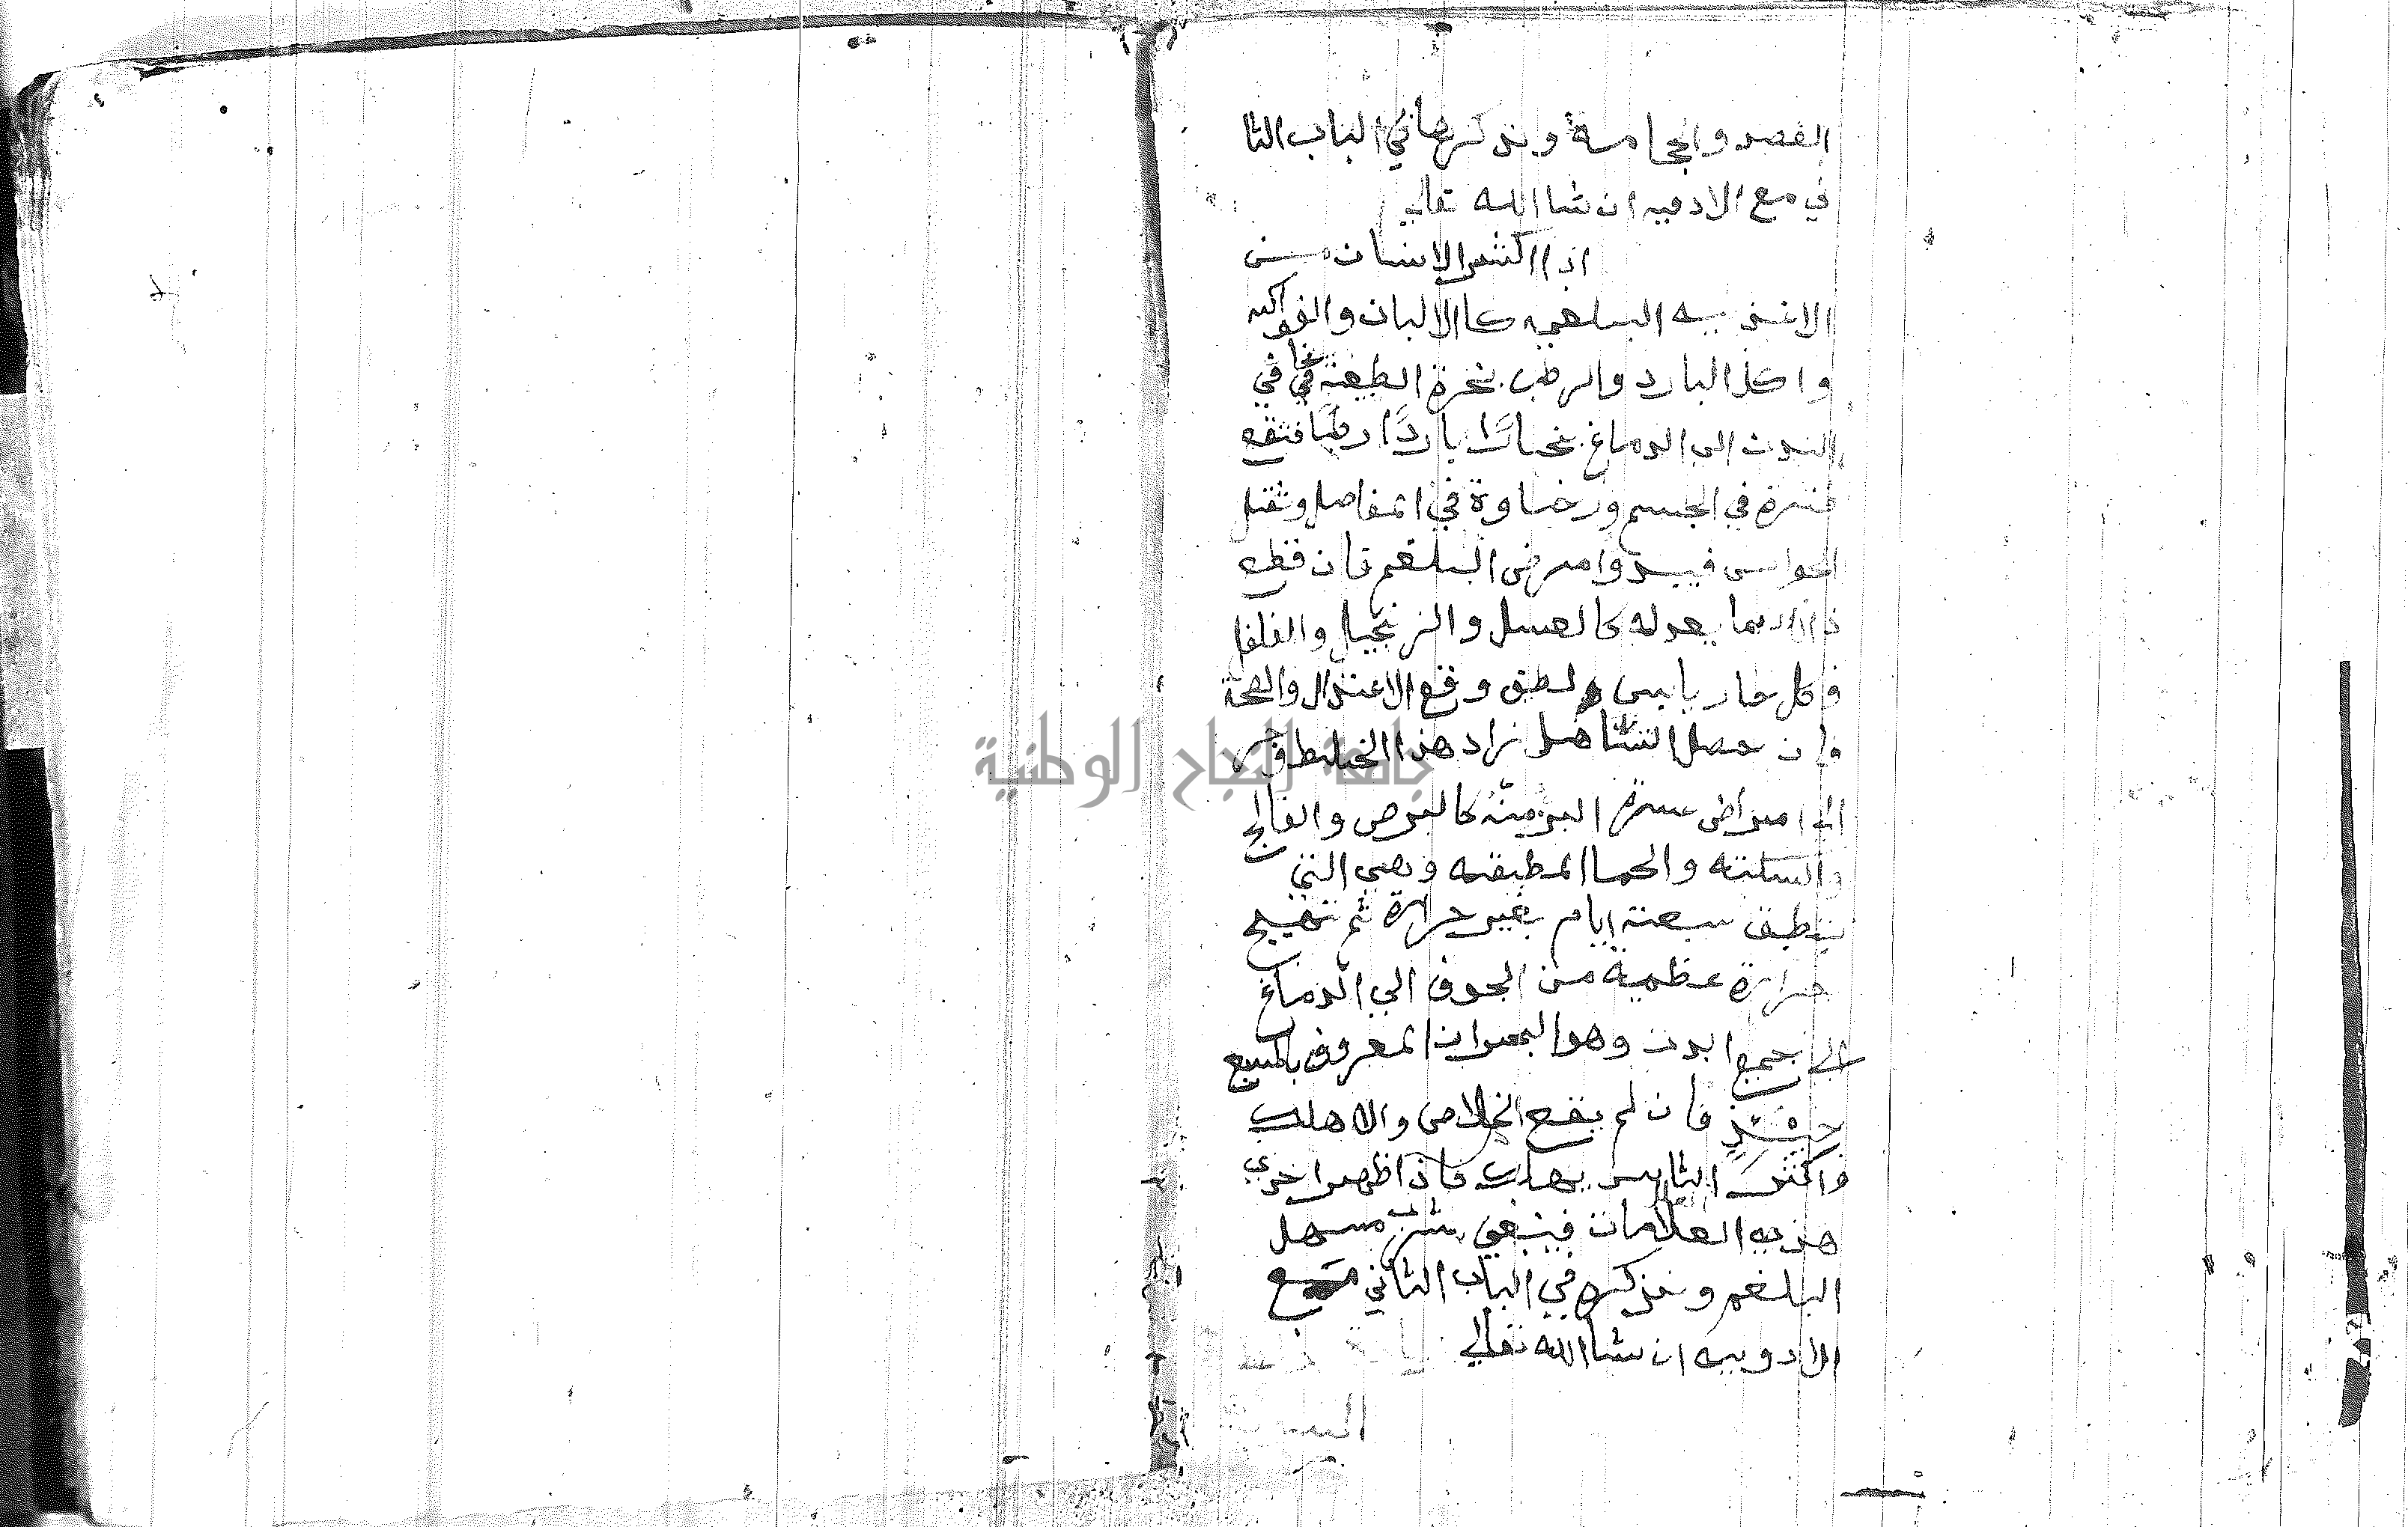 الفصد والحجامة ونذكرها في الباب الثا
ني مع الادويه ان شا الله تعالى
اذا اكثر الانسان من
الاغذيه البلغميه كاالالبان والفواكه
واكل البارد والرطب بخرة الطبعة في
البدن الى الدماغ بخارًا باردًا رطبًا فتقع
فترة في الجسم ورخاوة في المفاصل وثقل
الحواس فيبدوا مرض البلغم فان قطع
ذالك بما يعدله كالعسل والزنجبيل والفلفل
وكل حار يابس ولطيف وقع الاعتدال والصحة
وان حصل التساهل زاد هذا الخلط
الى امراض المزمنه كالبرص والفالج
والسكته والحما المطبقه وهي التي
تطبق سبعة ايام بغير حرارة ثم تهيج
حرارة عظمية من الجوف الي الدماغ
الى جميع البدن وهو البحران المعروف بالسبع
حينئذٍ فان لم يقع الخلاص والا هلك
واكثر الناس يهلك فاذا ظهر احدي
هذيه العلامات فينبغي شرب مسهل
البلغم ونذكره في الباب الثاني مع
الادويه ان شا الله تعالى
جامعة النجاح الوطنية